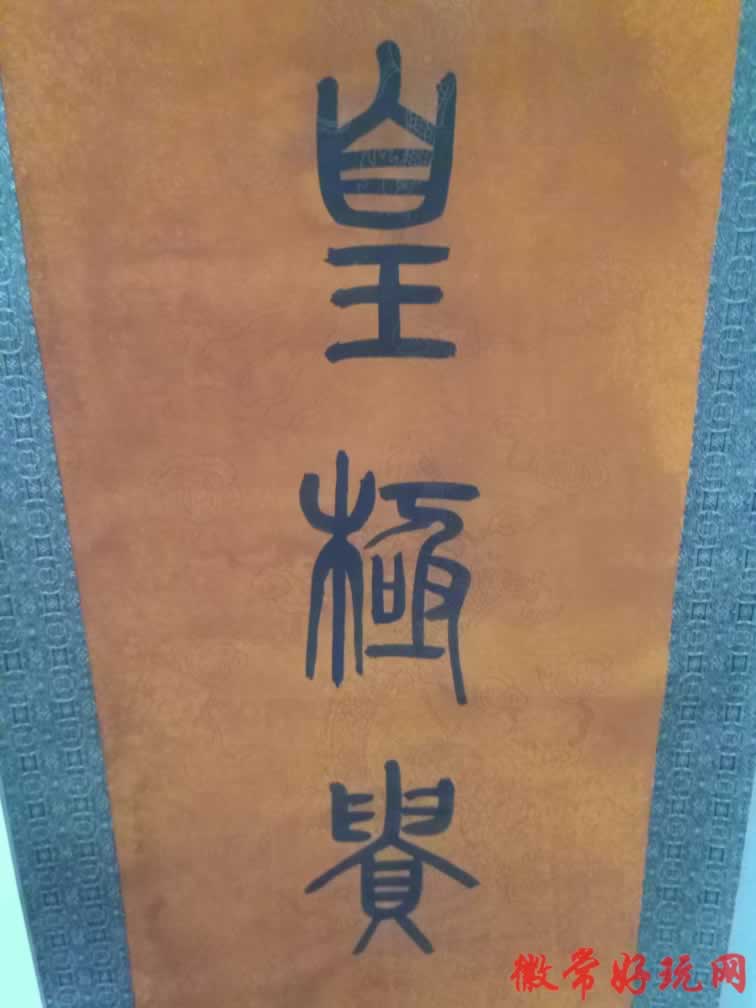 皇極貴
徽常好玩网